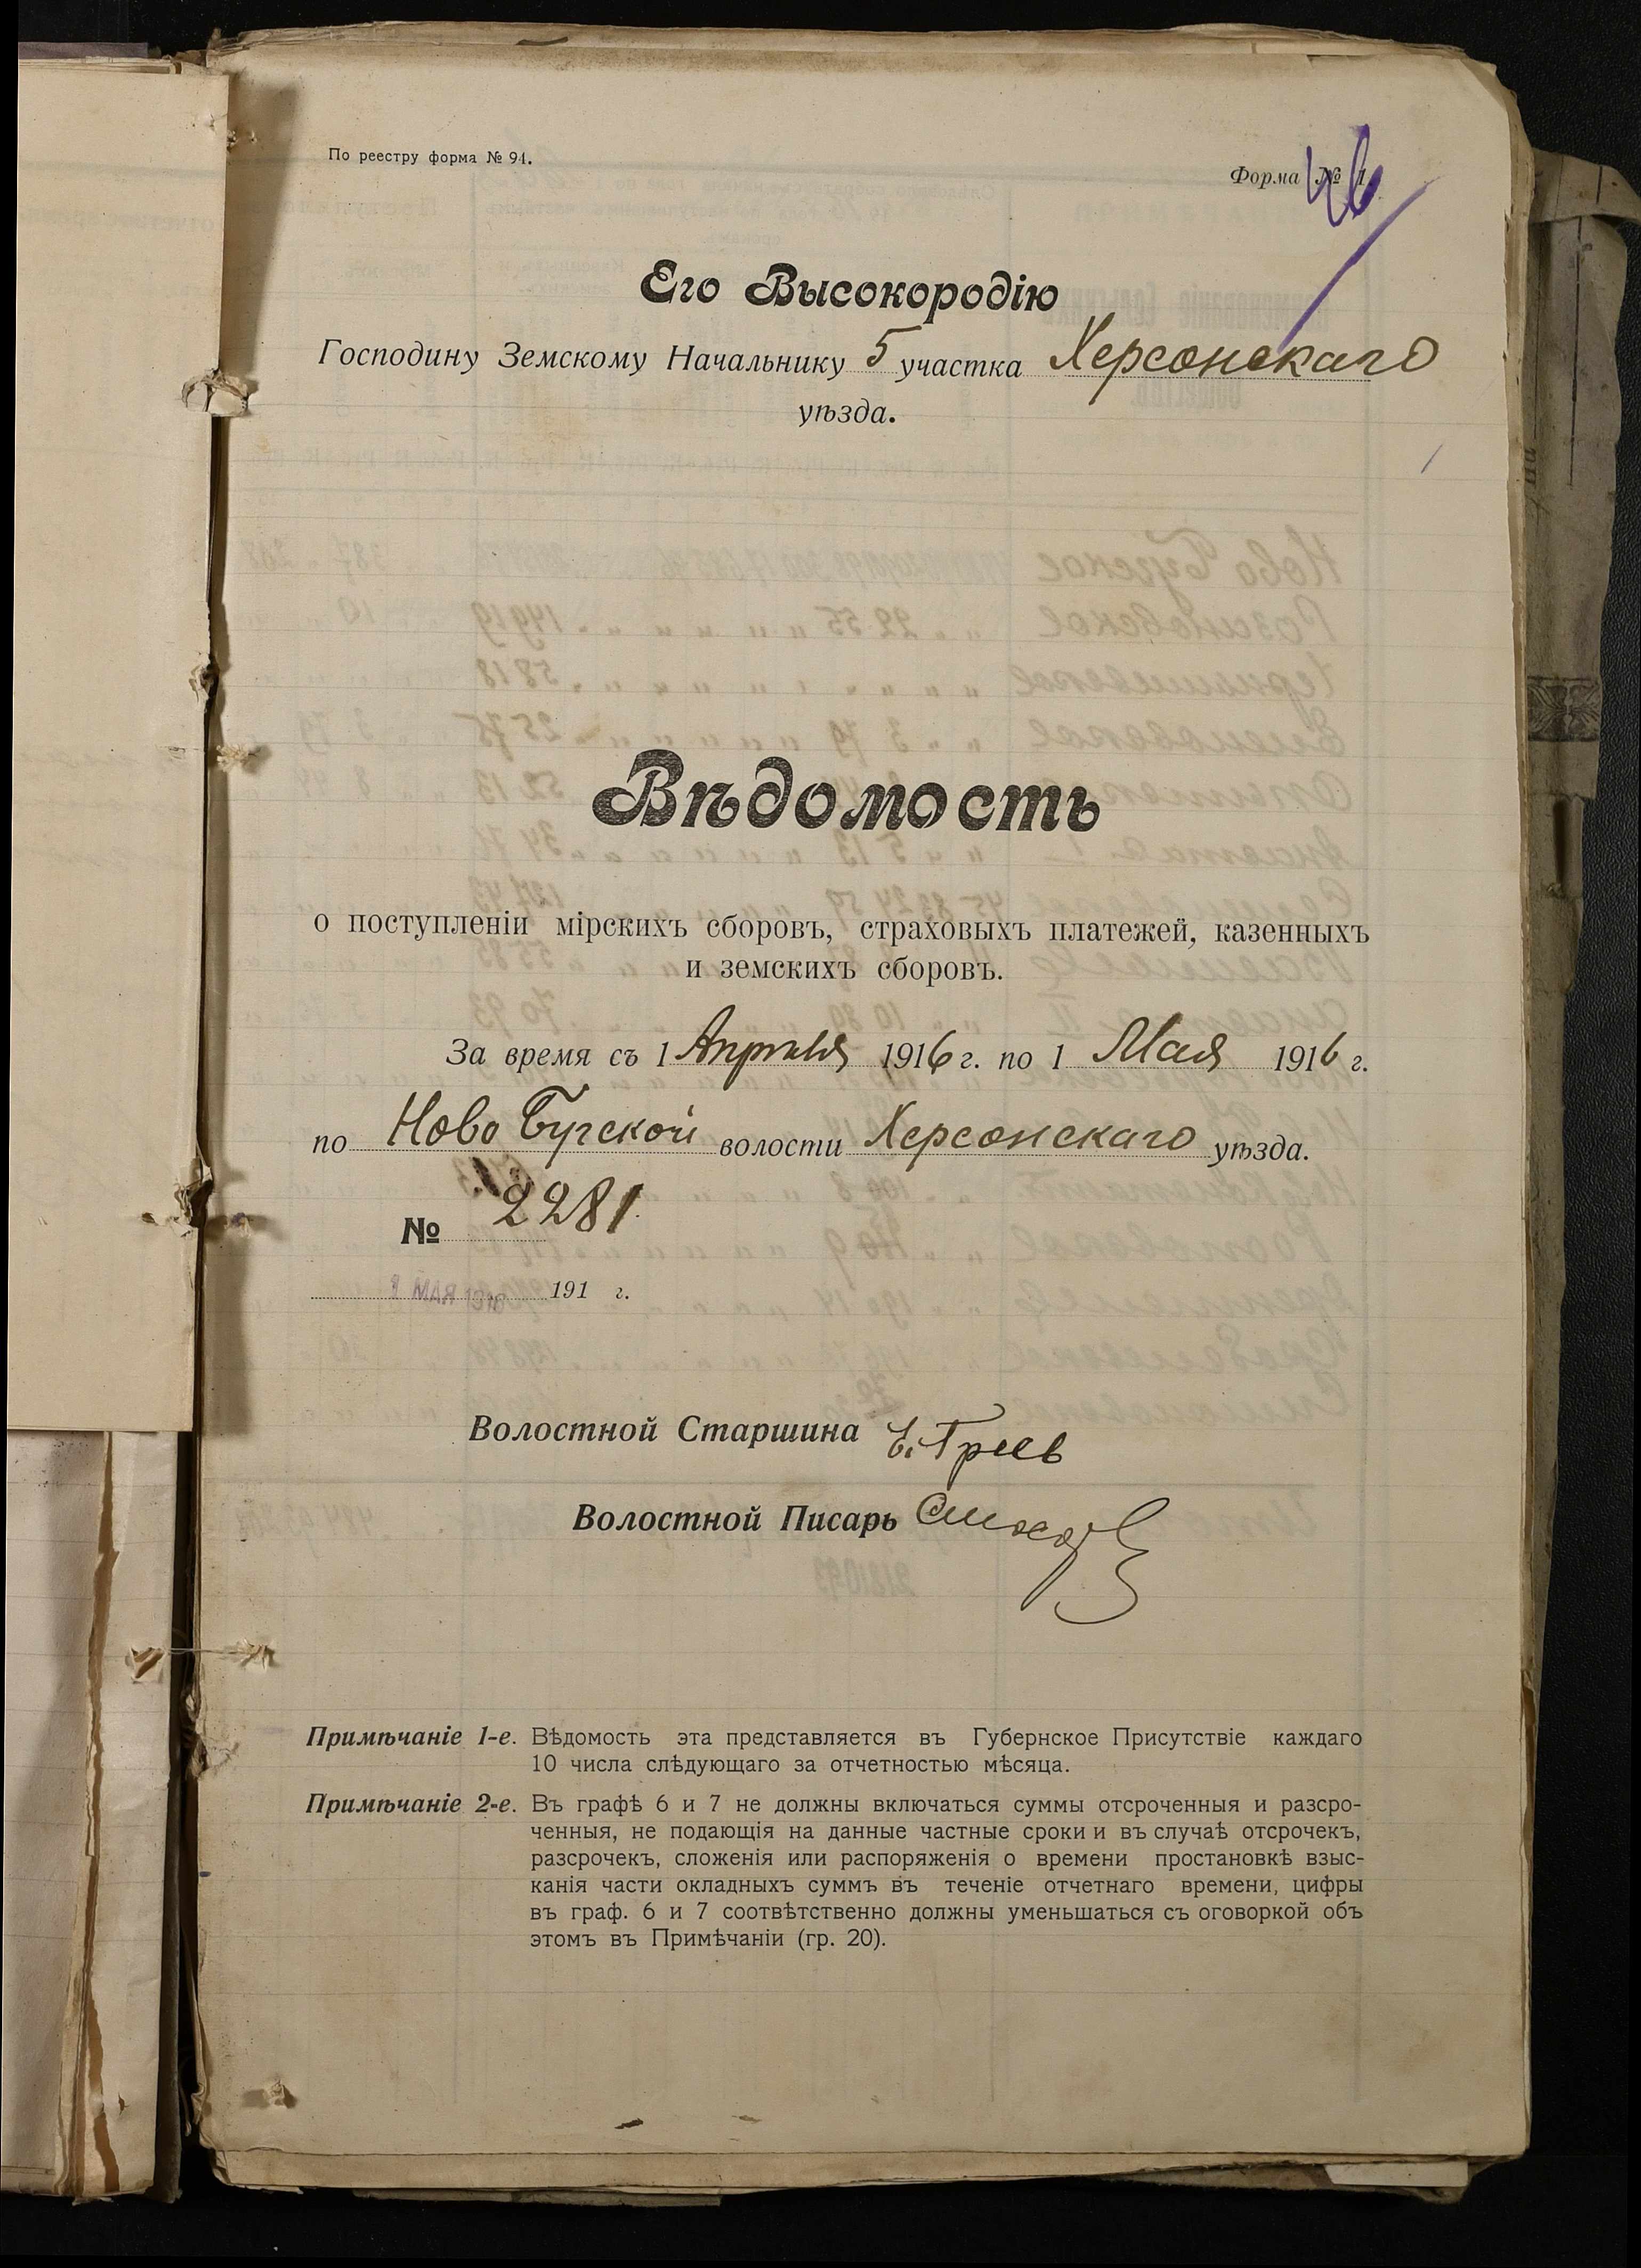 По реестру форма № 94.
Форма № 1
46
Его Высокородію
Господину Земскому Начальнику 5 участка Херсонскаго
уѣзда.
Вѣдомость
о поступленіи мірскихъ сборовъ, страховыхъ платежей, казенныхъ
и земскихъ сборовъ.
За время съ 1 Апрѣля 1916 г. по 1 Мая 1916 г.
по Ново Бугской волости Херсонскаго уѣзда.
№ 2281
МАЯ 1916 191 г.
Волостной Старшина
Волостной Писарь
Примѣчаніе 1-е. Вѣдомость эта представляется въ Губернское Присутствіе каждаго
10 числа слѣдующаго за отчетностью мѣсяца.
Примѣчаніе 2-е. Въ графѣ 6 и 7 не должны включаться суммы отсроченныя и разсро-
ченныя, не подающія на данные частные сроки и въ случаѣ отсрочекъ,
разсрочекъ, сложенія или распоряженія о времени простановкѣ взыс-
канія части окладныхъ суммъ въ теченіе отчетнаго времени, цифры
въ граф. 6 и 7 соотвѣтственно должны уменьшаться съ оговоркой объ
этомъ въ Примѣчаніи (гр. 20).